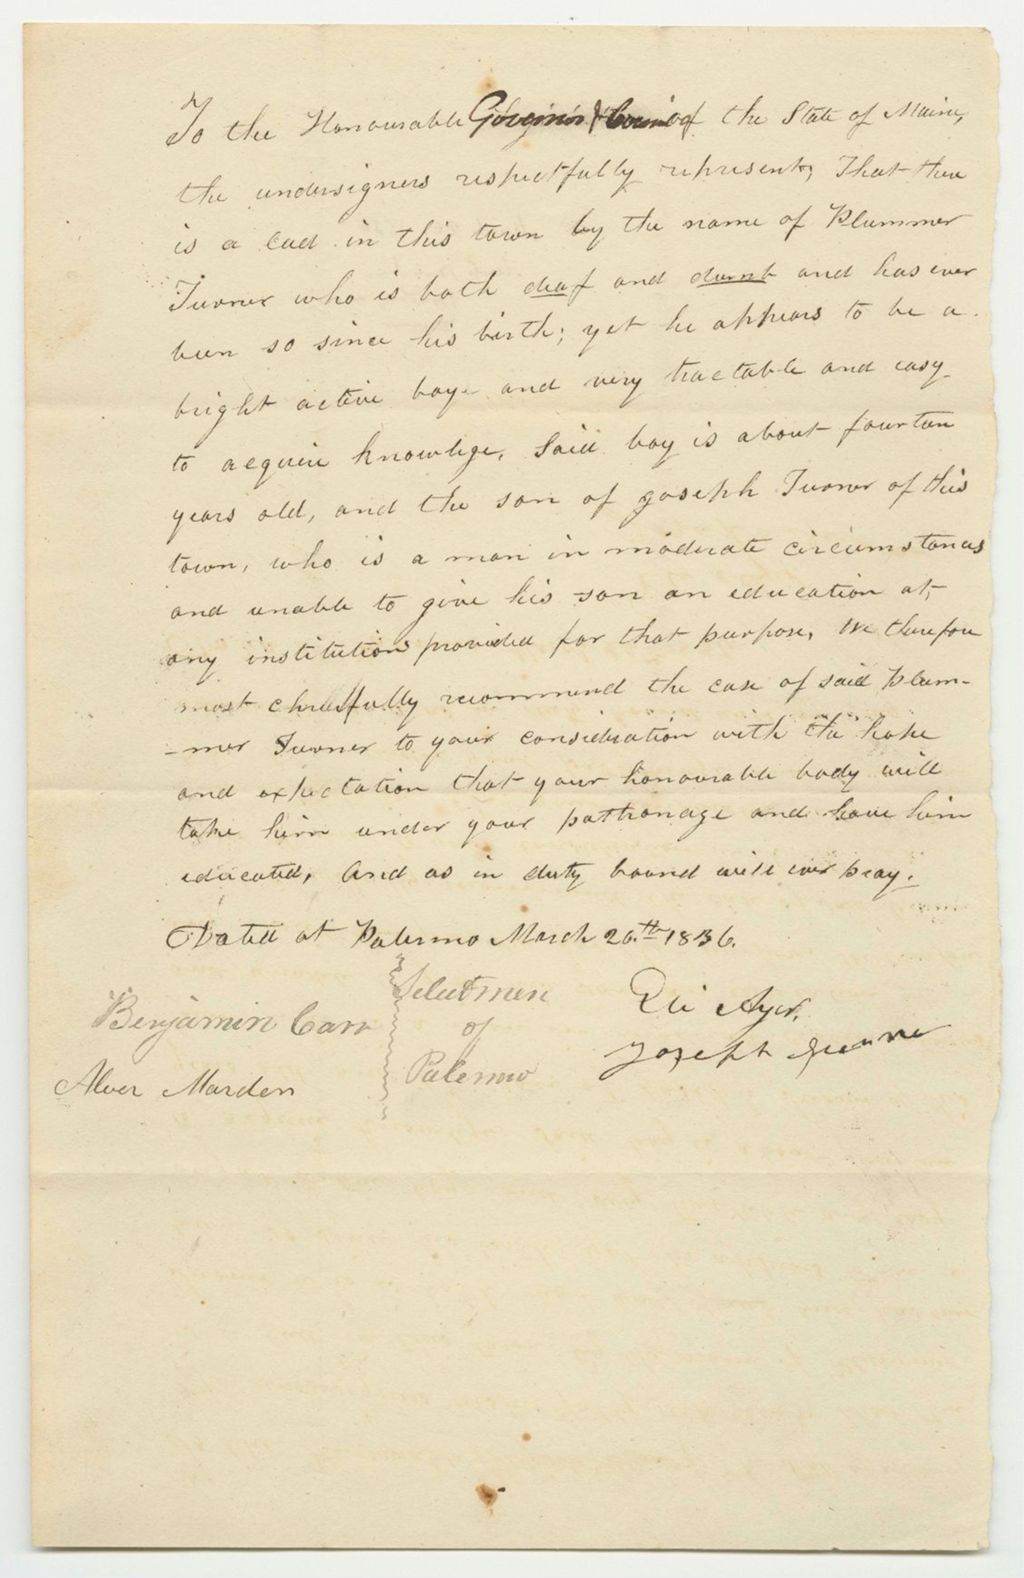 To the Honourable Governor & Council of the State of Maine,
the undersigners respectfully represent, That there
is a lad in this town by the name of Plummer
Turner who is both deaf and dumb and has ever
been so since his birth; yet he appears to be a
bright active boy and very tractable and easy
to acquire knowlige, Said boy is about fourteen
years old, and the son of Joseph Turner of this
town, who is a man in moderate circumstances
and unable to give his son an education at,
any institution provided for that purpose, We therefore
most cheerfully recommend the case of said Plum-
-mer Turner to your consideration with the hope
and expectation that your honourable body will
take him under your patronage and have him
educated, And as in duty bound will ever pray.
Dated at Palermo March 26.th 1836.
Benjamin Carr
Alver Marden
Selectmen
of
Palermo
Eli Ayer,
Joseph Turner